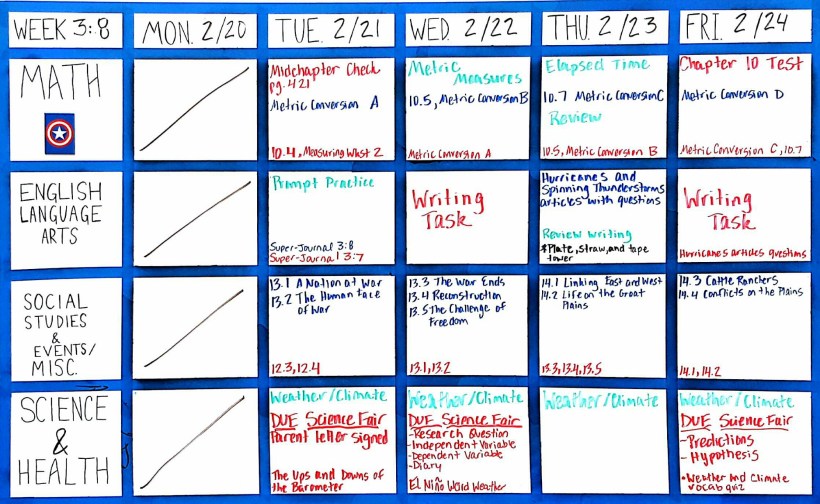 WEEK 3:8
MON. 2/20
TUE. 2/21
WED. 2/22
THU. 2/23
FRI. 2/24
MATH
Midchapter Check
pg. 421
Metric Conversion A
10.4, Measuring Wkst 2
Metric
Measures
10.5, Metric Conversion B
Metric Conversion A
Elapsed Time
10.7 Metric Conversion C
Review
10.5, Metric Conversion B
Chapter 10 Test
Metric Conversion D
Metric Conversion C, 10.7
ENGLISH
LANGUAGE
ARTS
Prompt Practice
Super-Journal 3:8
Super-Journal 3:7
Writing
Task
Hurricanes and
Spinning Thunderstorms
articles with questions
Review writing
*Plate, straw, and tape
tower
Writing
Task
Hurricanes articles questions
SOCIAL
STUDIES
&
EVENTS/
MISC.
13.1 A Nation at War
13.2 The Human Face
of War
12.3, 12.4
13.3 The War Ends
13.4 Reconstruction
13.5 The Challenge of
Freedom
13.1, 13.2
14.1 Linking East and West
14.2 Life on the Great
Plains
13.3, 13.4, 13.5
14.3 Cattle Ranchers
14.4 Conflicts on the Plains
14.1, 14.2
SCIENCE
&
HEALTH
Weather/Climate
DUE Science Fair
Parent letter signed
The Ups and Downs of
the Barometer
Weather/Climate
DUE Science Fair
-Research Question
-Independent Variable
-Dependent Variable
-Diary
El Niño Wild Weather
Weather/Climate
Weather/Climate
DUE Science Fair
-Predictions
-Hypothesis
•Weather and Climate
vocab quiz